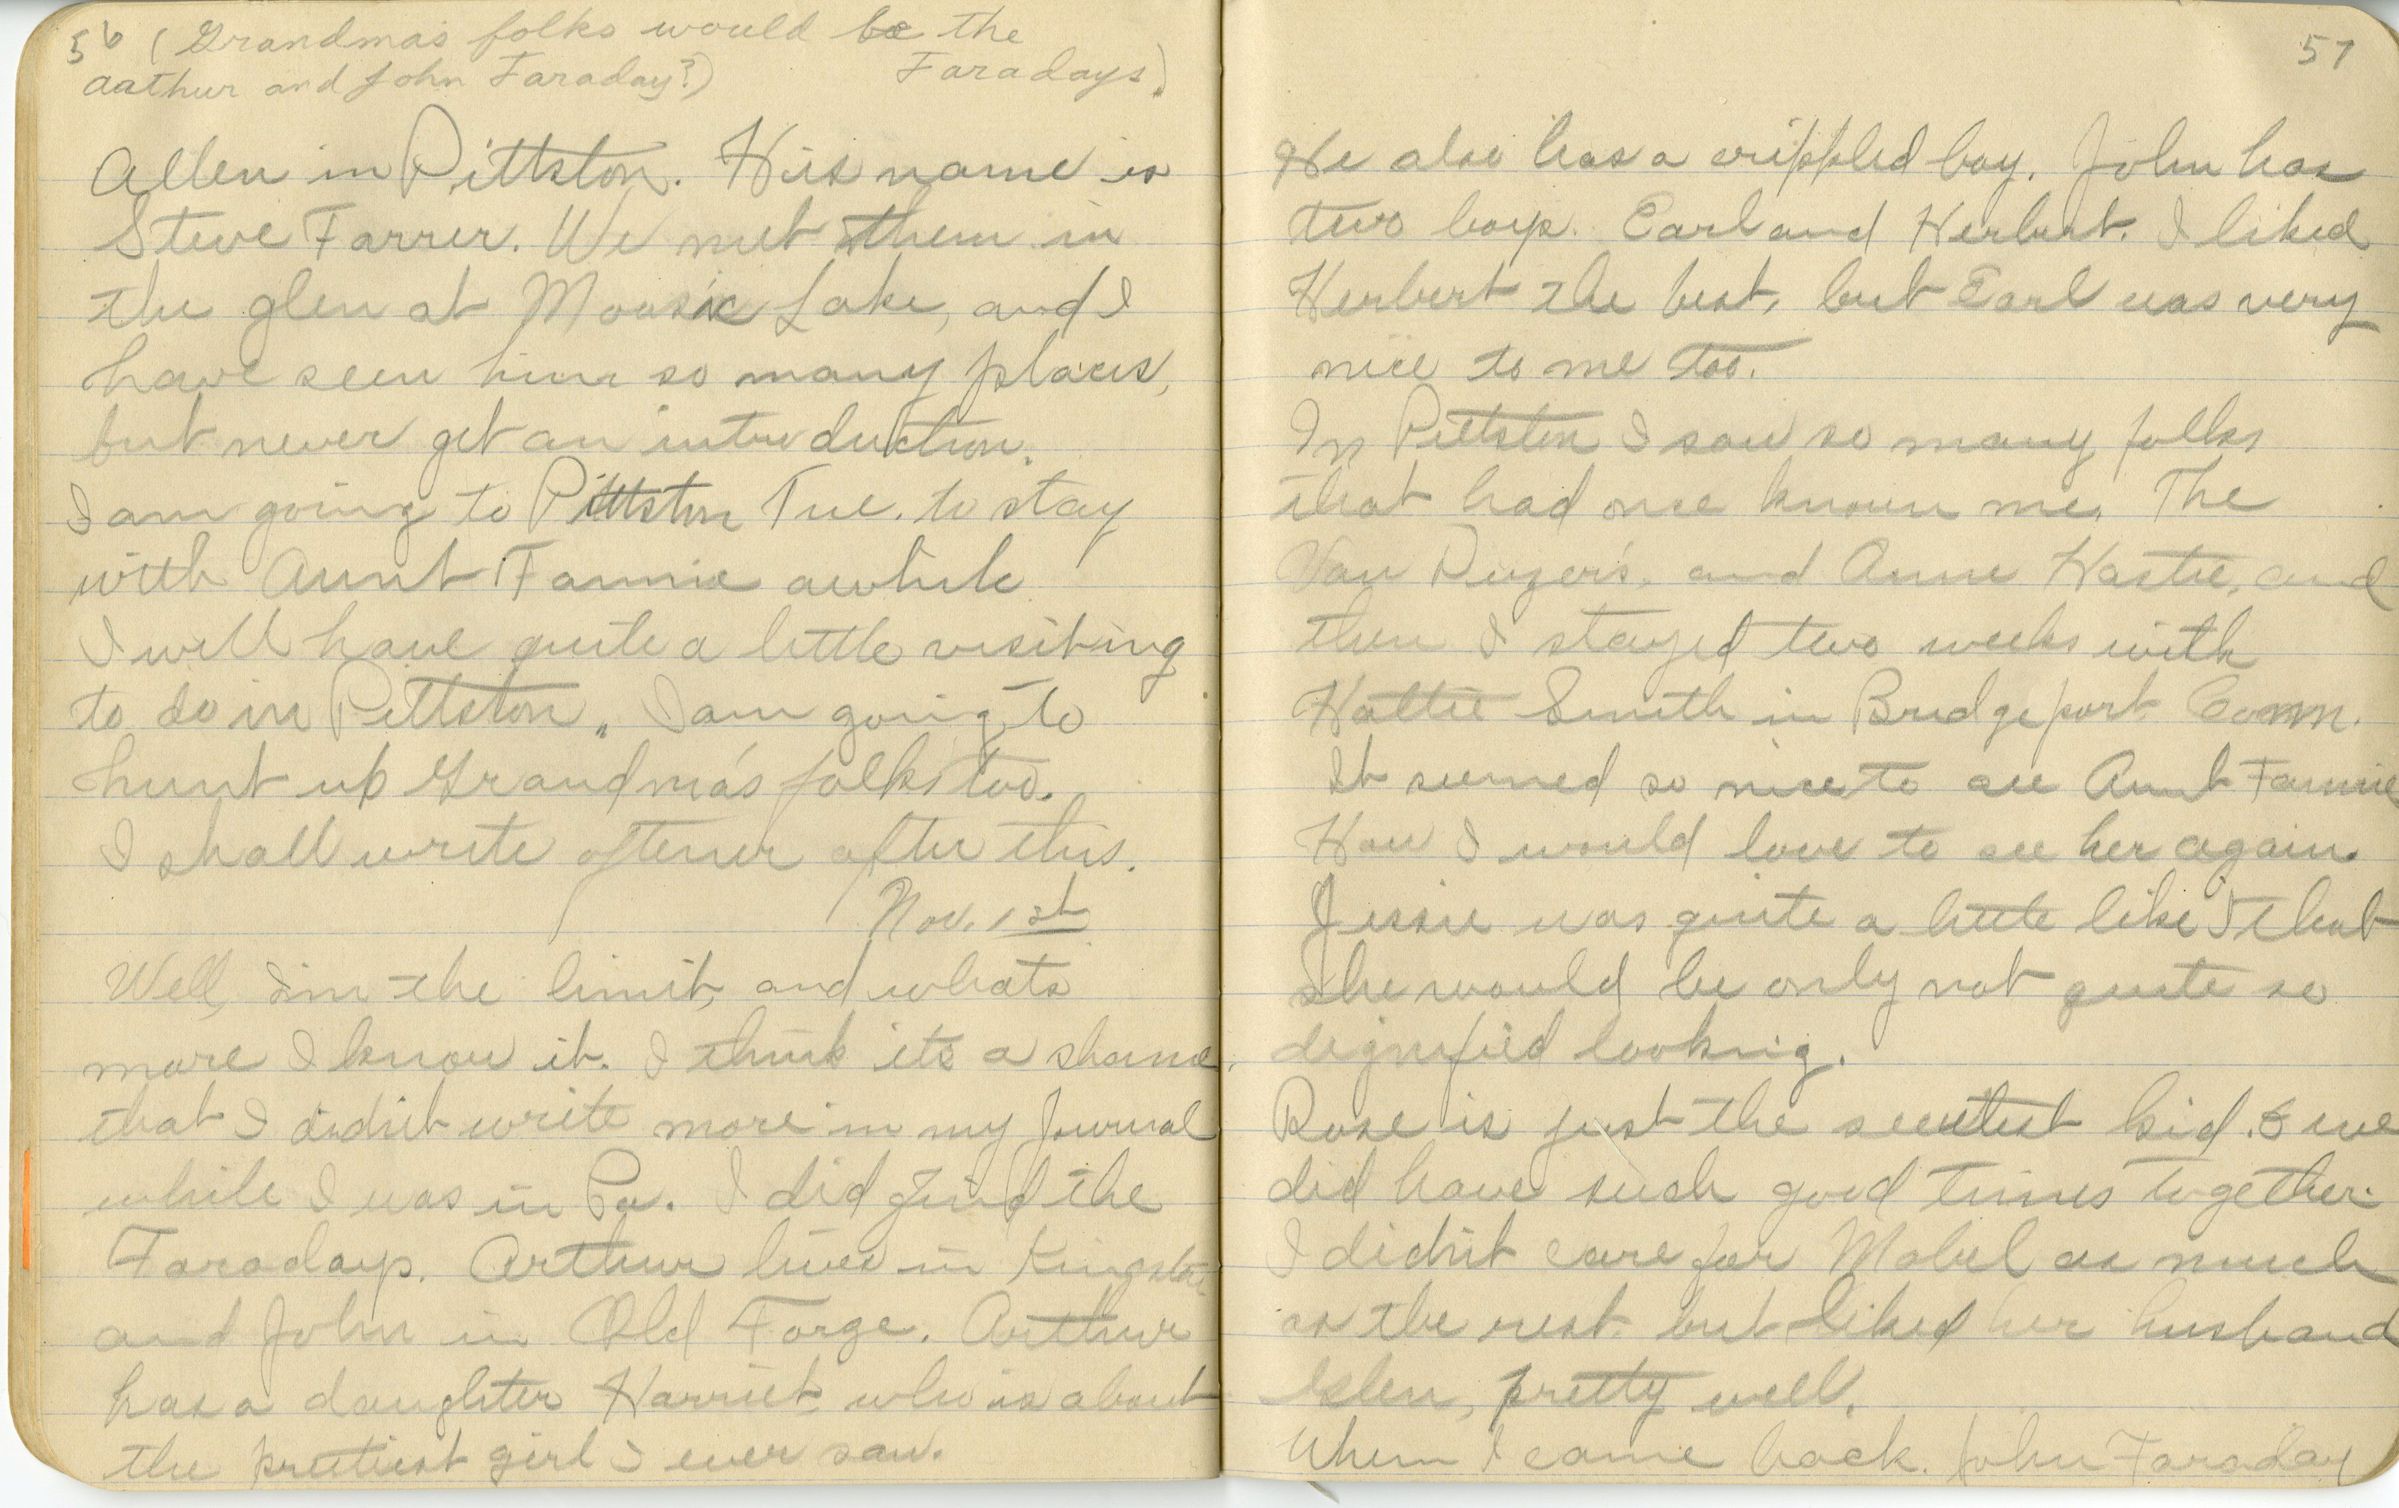 56 (Grandmas folks would be the
Faradays)
Aathur and John Faraday?)
Allen in Pittston. His name is
Steve Farrer. We met them in
the glen at Moosic Lake, and I
have seen him so many places,
but never get an introduction.
I am going to Pittston Tue. to stay
with Aunt Fannie awhile
I will have quite a little visiting
to do in Pittston. I am going to
hunt up Grandma's folks too.
I shall write oftener after this.
Nov. 1st
Well, I'm the limit, and whats
more I know it. I think its a shame
that I didn't write more in my Journal
while I was in Pa. I did find the
Faradays. Arthur lives in Kingston
and John in Old Forge. Arthur
has a daughter Harriet who is about
the prettiest girl I ever saw.
57
He also has a crippled boy. John has
two boys. Earl and Herbert. I liked
Herbert the best, but Earl was very
nice to me too.
In Pittston I saw so many folks
that had once known me. The
Van Duzer's, and Anne Hastie, and
then I stayed two weeks with
Hattie Smith in Bridgeport Conn.
It seemed so nice to see Aunt Fannie
How I would love to see her again.
Jessie was quite a little like I that
she would be only not quite so
dignified looking.
Rose is just the sweetest kid. & we
did have such good times together.
I didn't care for Mabel as much
as the rest but liked her husband
Islen, pretty well.
When I came back. John Faraday